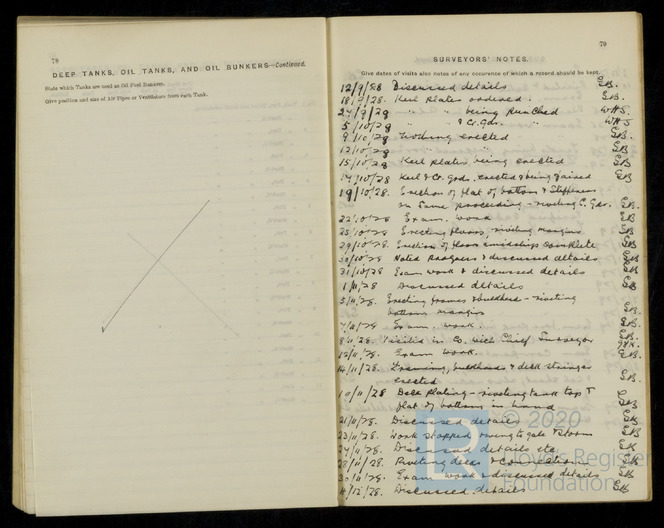 78
DEEP TANKS, OIL TANKS, AND OIL BUNKERS—Continued.
State which Tanks are used as Oil Fuel Bunkers.
Give position and size of Air Pipes or Ventilators from each Tank.
79
SURVEYORS' NOTES.
Give dates of visits also notes of any occurence of which a record should be kept.
12/9/28 Discussed details
18/9/28. Keel Plates ordered.
24/9/28 " " being Punched W.H.S.
5/10/28 " & Cr. Gdr. " W.H.S.
9/10/28 erected
12/10/28 " "
15/10/28 Keel plates being erected
17/10/28 Keel & Cr. Gdr. erected & being faired
19/10/28. Erection of flat of bottom & Stiffeners
on same proceeding - riveting C. Gdr.
22/10/28 Exam. work
25/10/28 Erecting floors, riveting margins
29/10/28 Erection of floors amidships complete
30/10/28 Noted Progress & discussed details
31/10/28 Exam work & discussed details
1/11/28 Discussed details
5/11/28. Erecting frames & bulkheads - riveting
bottom margins
7/11/28 Exam. work.
8/11/28. Visited in Co. with Chief Surveyor
12/11/28. Exam work.
14/11/28. Framing, bulkheads & deck stringer
erected
19/11/28 Deck Plating - riveting tank top &
flat of bottom in hand
21/11/28. Discussed details
23/11/28. Work stopped owing to gale & storm
27/11/28. Discussed details etc.
28/11/28. Riveting decks &
30/11/28. Exam work & discussed details
4/12/28. Discussed details
LR © 2020
Lloyds Register
Foundation